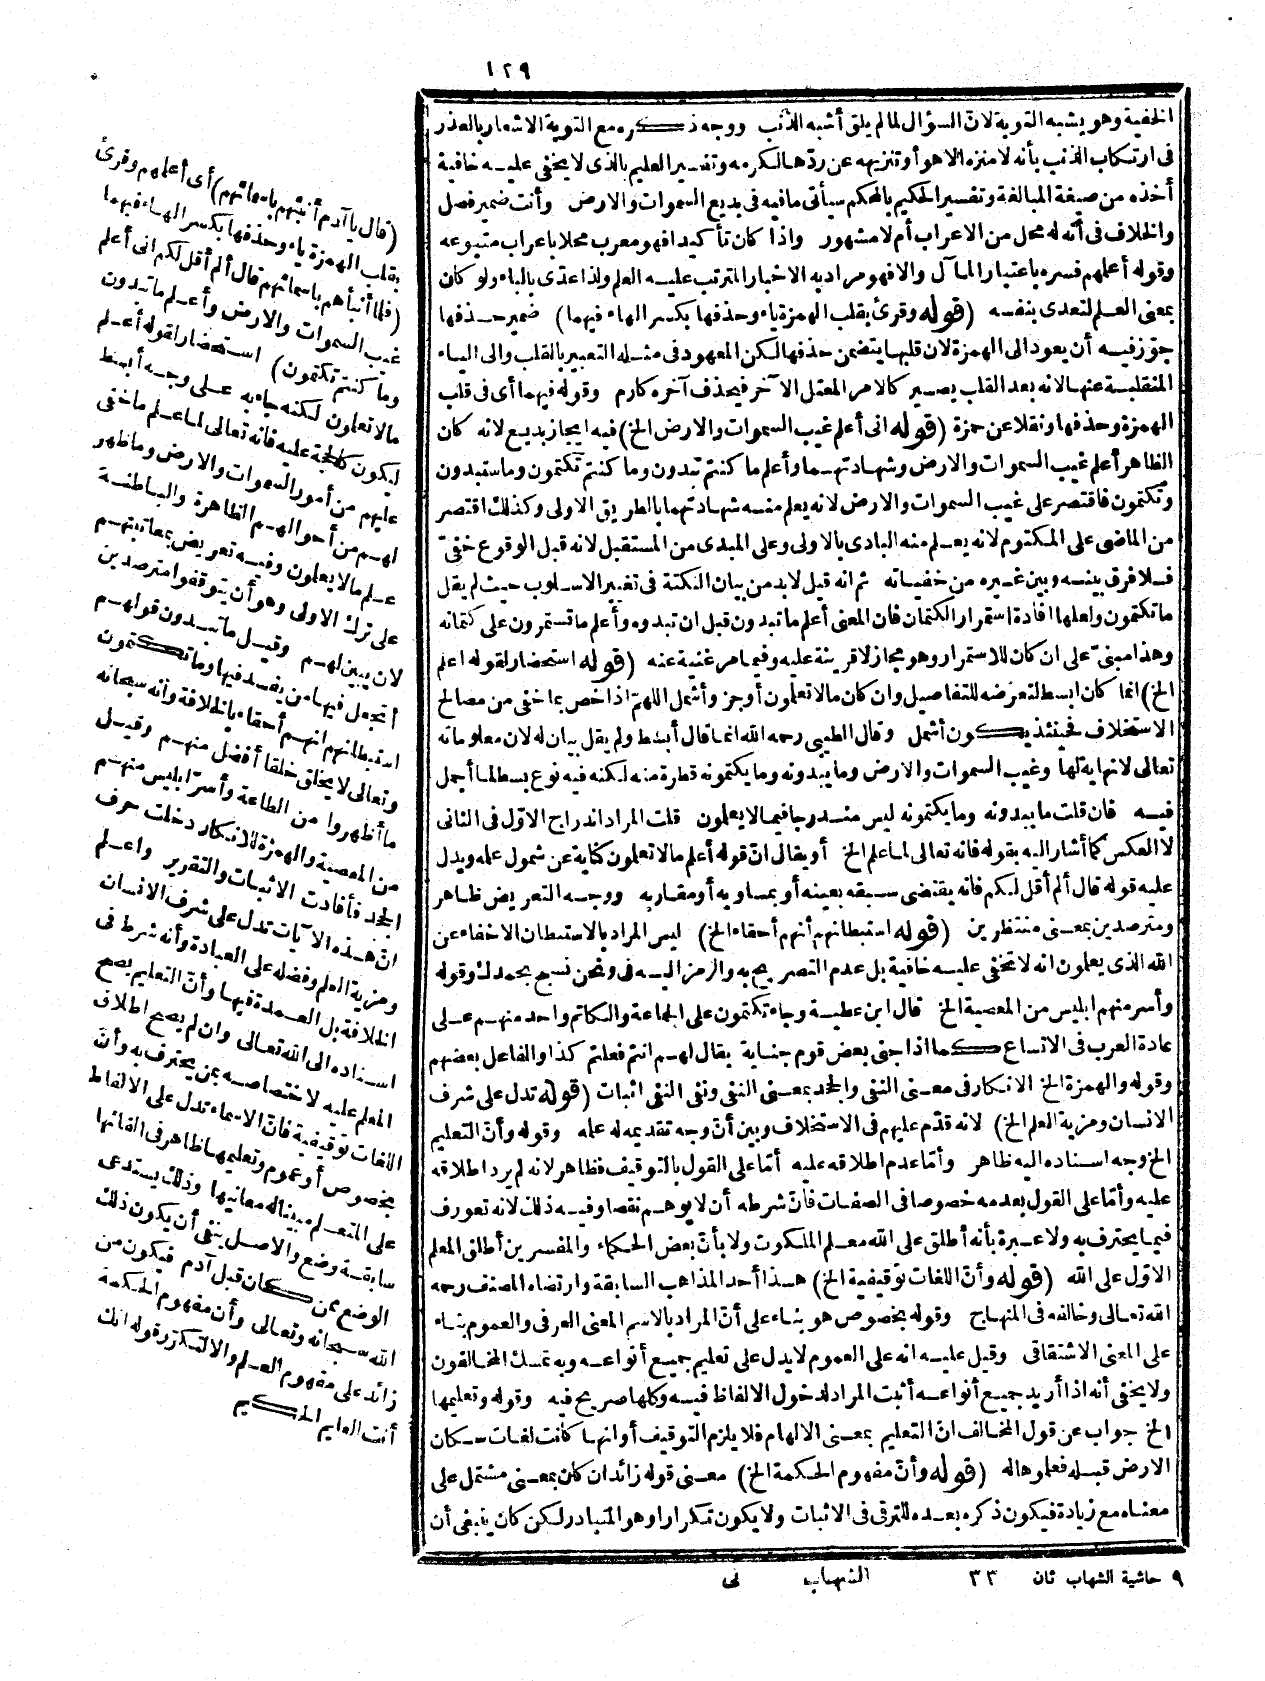 ١٢٩
الخفية وهو يشبه التوبة لانّ السؤال لما لم يلق أشبه الذنب ووجه ذكره مع التوبة الاشعار بالعذر
فى ارتكاب الذنب بأنه لا منزه الا هو أو تنزيهه عن ردّها لكرمه وتفسير العليم بالذى لا يخفى عليه خافية
أخذه من صيغة المبالغة وتفسير الحكيم بالمحكم سيأتى مافيه فى بديع السموات والارض وأنت ضمير فصل
والخلاف فى أنّه له محل من الاعراب أم لا مشهور واذا كان تأكيدا فهو معرب محلا باعراب متبوعه
وقوله أعلمهم فسره باعتبار المآل والا فهو مراد به الاخبار المترتب عليه العلم ولذا عدّى بالباء ولو كان
بمعنى العلم لتعدى بنفسه (قوله وقرئ بقلب الهمزة ياء وحذفها بكسر الهاء فيهما) ضمير حذفها
جوّز فيه أن يعود الى الهمزة لان قلبها يتضمن حذفها لكن المعهود فى مثله التعبير بالقلب والى الياء
المنقلبة عنها لانه بعد القلب يصير كالامر المعتل الآخر فيحذف آخره كارم وقوله فيهما أى فى قلب
الهمزة وحذفها ونقلا عن حمزة (قوله انى أعلم غيب السموات والارض الخ) فيه ايجاز بديع لانه كان
الظاهر أعلم غيب السموات والارض وشهادتهما وأعلم ما كنتم تبدون وما كنتم تكتمون وما ستبدون
وتكتمون فاقتصر على غيب السموات والارض لانه يعلم منه شهادتهما بالطريق الاولى وكذلك اقتصر
من الماضى على المكتوم لانه يعلم منه البادى بالاولى وعلى المبدى من المستقبل لانه قبل الوقوع خفىّ
فلا فرق بينه وبين غيره من خفياته ثم انه قيل لابد من بيان النكتة فى تغيير الاسلوب حيث لم يقل
ما تكتمون ولعلها افادة استمرار الكتمان فان المعنى أعلم ما تبدون قبل ان تبدوه وأعلم ما تستمرون على كتمانه
وهذا مبنىّ على ان كان للاستمرار وهو مجاز لاقرينة عليه وفيما مر غنية عنه (قوله استحضار لقوله اعلم
الخ) انما كان ابسط لتعرضه للتفاصيل وان كان ما لا تعلمون أوجز وأشمل اللهمّ اذا خص بما خفى من مصالح
الاستخلاف فحينئذ يكون أشمل وقال الطيبى رحمه الله انما قال أبسط ولم يقل بيان له لان معلوماته
تعالى لا نهاية لها وغيب السموات والارض وما يبدونه وما يكتمونه قطرة منه لكنه فيه نوع بسط لما أجمل
فيه فان قلت ما يبدونه وما يكتمونه ليس مندرجا فيما لا يعلمون قلت المراد اندراج الاوّل فى الثانى
لا العكس كما أشار اليه بقوله فانه تعالى لما علم الخ أو يقال انّ قوله أعلم ما لا تعلمون كناية عن شمول علمه ويدل
عليه قوله قال ألم أقل لكم فانه يقتضى سبقه بعينه أو بمساويه أو مقاربه ووجه التعريض ظاهر
ومترصدين بمعنى منتظرين (قوله استبطانهم أنهم أحقاء الخ) ليس المراد بالاستبطان الاخفاء عن
الله الذى يعلمون انه لا تخفى عليه خافية بل عدم التصريح به والرمز اليه فى ونحن نسبح بحمدك وقوله
وأسر منهم ابليس من المعصية الخ قال ابن عطية وجاء تكتمون على الجماعة والكاتم واحد منهم على
عادة العرب فى الاتساع كما اذا جنى بعض قوم جناية يقال لهم انتم فعلتم كذا والفاعل بعضهم
وقوله والهمزة الخ الانكار فى معنى النفى والجحد بمعنى النفى ونفى النفى اثبات (قوله تدل على شرف
الانسان ومزية العلم الخ) لانه قدّم عليهم فى الاستخلاف وبين أنّ وجه تقديمه له علمه وقوله وأنّ التعليم
الخ وجه اسناده اليه ظاهر وأمّا عدم اطلاقه عليه أمّا على القول بالتوقيف فظاهر لانه لم يرد اطلاقه
عليه وأمّا على القول بعدمه خصوصا فى الصفات فانّ شرطه أن لا يوهم نقصا وفيه ذلك لانه تعورف
فيما يحترف به ولا عبرة بأنه أطلق على الله معلم الملكوت ولا بأنّ بعض الحكماء والمفسرين أطلق المعلم
الاوّل على الله (قوله وأنّ اللغات توقيفية الخ) هذا أحد المذاهب السابقة وارتضاه المصنف رحمه
الله تعالى وخالفه فى المنهاج وقوله بخصوص هو بناء على أنّ المراد بالاسم المعنى العرفى والعموم بناء
على المعنى الاشتقاقى وقيل عليه انه على العموم لا يدل على تعليم جميع أنواعه وبه تمسك المخالفون
ولا يخفى أنه اذا أريد جميع أنواعه أثبت المراد لدخول الالفاظ فيه وكلها صريح فيه وقوله وتعليمها
الخ جواب عن قول المخالف انّ التعليم بمعنى الالهام فلا يلزم التوقيف أو انها كانت لغات سكان
الارض قبله فعلموها له (قوله وأنّ مفهوم الحكمة الخ) معنى قوله زائد ان كان بمعنى مشتمل على
معناه مع زيادة فيكون ذكره بعده للترقى فى الاثبات ولا يكون تكرارا وهو المتبادر لكن كان ينبغى أن
(قال يا آدم أنبئهم بأسمائهم) أى أعلمهم وقرئ
بقلب الهمزة ياء وحذفها بكسر الهاء فيهما
(فلما أنبأهم بأسمائهم قال ألم أقل لكم انى أعلم
غيب السموات والارض وأعلم ما تبدون
وما كنتم تكتمون) استحضار لقوله أعلم
مالا تعلمون لكنه جاء به على وجه أبسط
ليكون كالحجة عليه فانه تعالى لما علم ما خفى
عليهم من أمور السموات والارض وما ظهر
لهم من أحوالهم الظاهرة والباطنة
علم مالا يعلمون وفيه تعريض بمعاتبتهم
على ترك الاولى وهو أن يتوقفوا مترصدين
لان يبين لهم وقيل ما تبدون قولهم
أتجعل فيها من يفسد فيها وما تكتمون
استبطانهم انهم أحقاء بالخلافة وأنه سبحانه
وتعالى لا يخلق خلقا أفضل منهم وقيل
ما أظهروا من الطاعة وأسرّ ابليس منهم
من المعصية والهمزة للانكار دخلت حرف
الجحد فأفادت الاثبات والتقرير واعلم
انّ هذه الآيات تدل على شرف الانسان
ومزية العلم وفضله على العبادة وأنه شرط فى
الخلافة بل العمدة فيها وأنّ التعليم يصح
اسناده الى الله تعالى وان لم يصح اطلاق
المعلم عليه لاختصاصه بمن يحترف به وأنّ
اللغات توقيفية فانّ الاسماء تدل على الالفاظ
بخصوص أو عموم وتعليمها ظاهر فى القائها
على المتعلم مبينا له معانيها وذلك يستدعى
سابقة وضع والاصل ينفى أن يكون ذلك
الوضع ممن كان قبل آدم فيكون من
الله سبحانه وتعالى وأن مفهوم الحكمة
زائد على مفهوم العلم والا لتكرّر قوله انك
أنت العليم الحكيم
٩ حاشية الشهاب ثان ٣٣ الشهاب نى